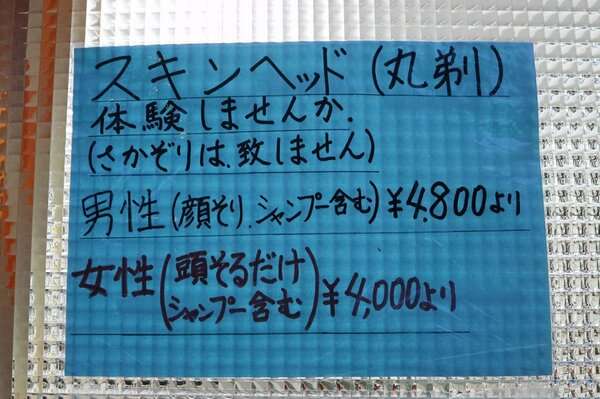 スキンヘッド(丸剃り)
体験しませんか.
(さかぞりは、致しません)
男性(顔そり、シャンプー含む)¥4,800より
女性(頭そるだけ
シャンプー含む)¥4,000より